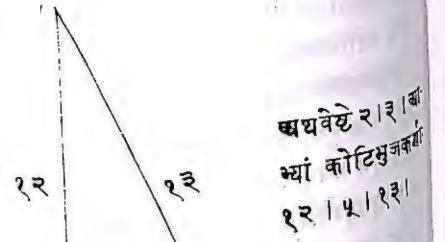 १२
१३
अथवेष्टे २।३। आ
भ्यां कोटिभुजकर्णाः
१२।५।१३।